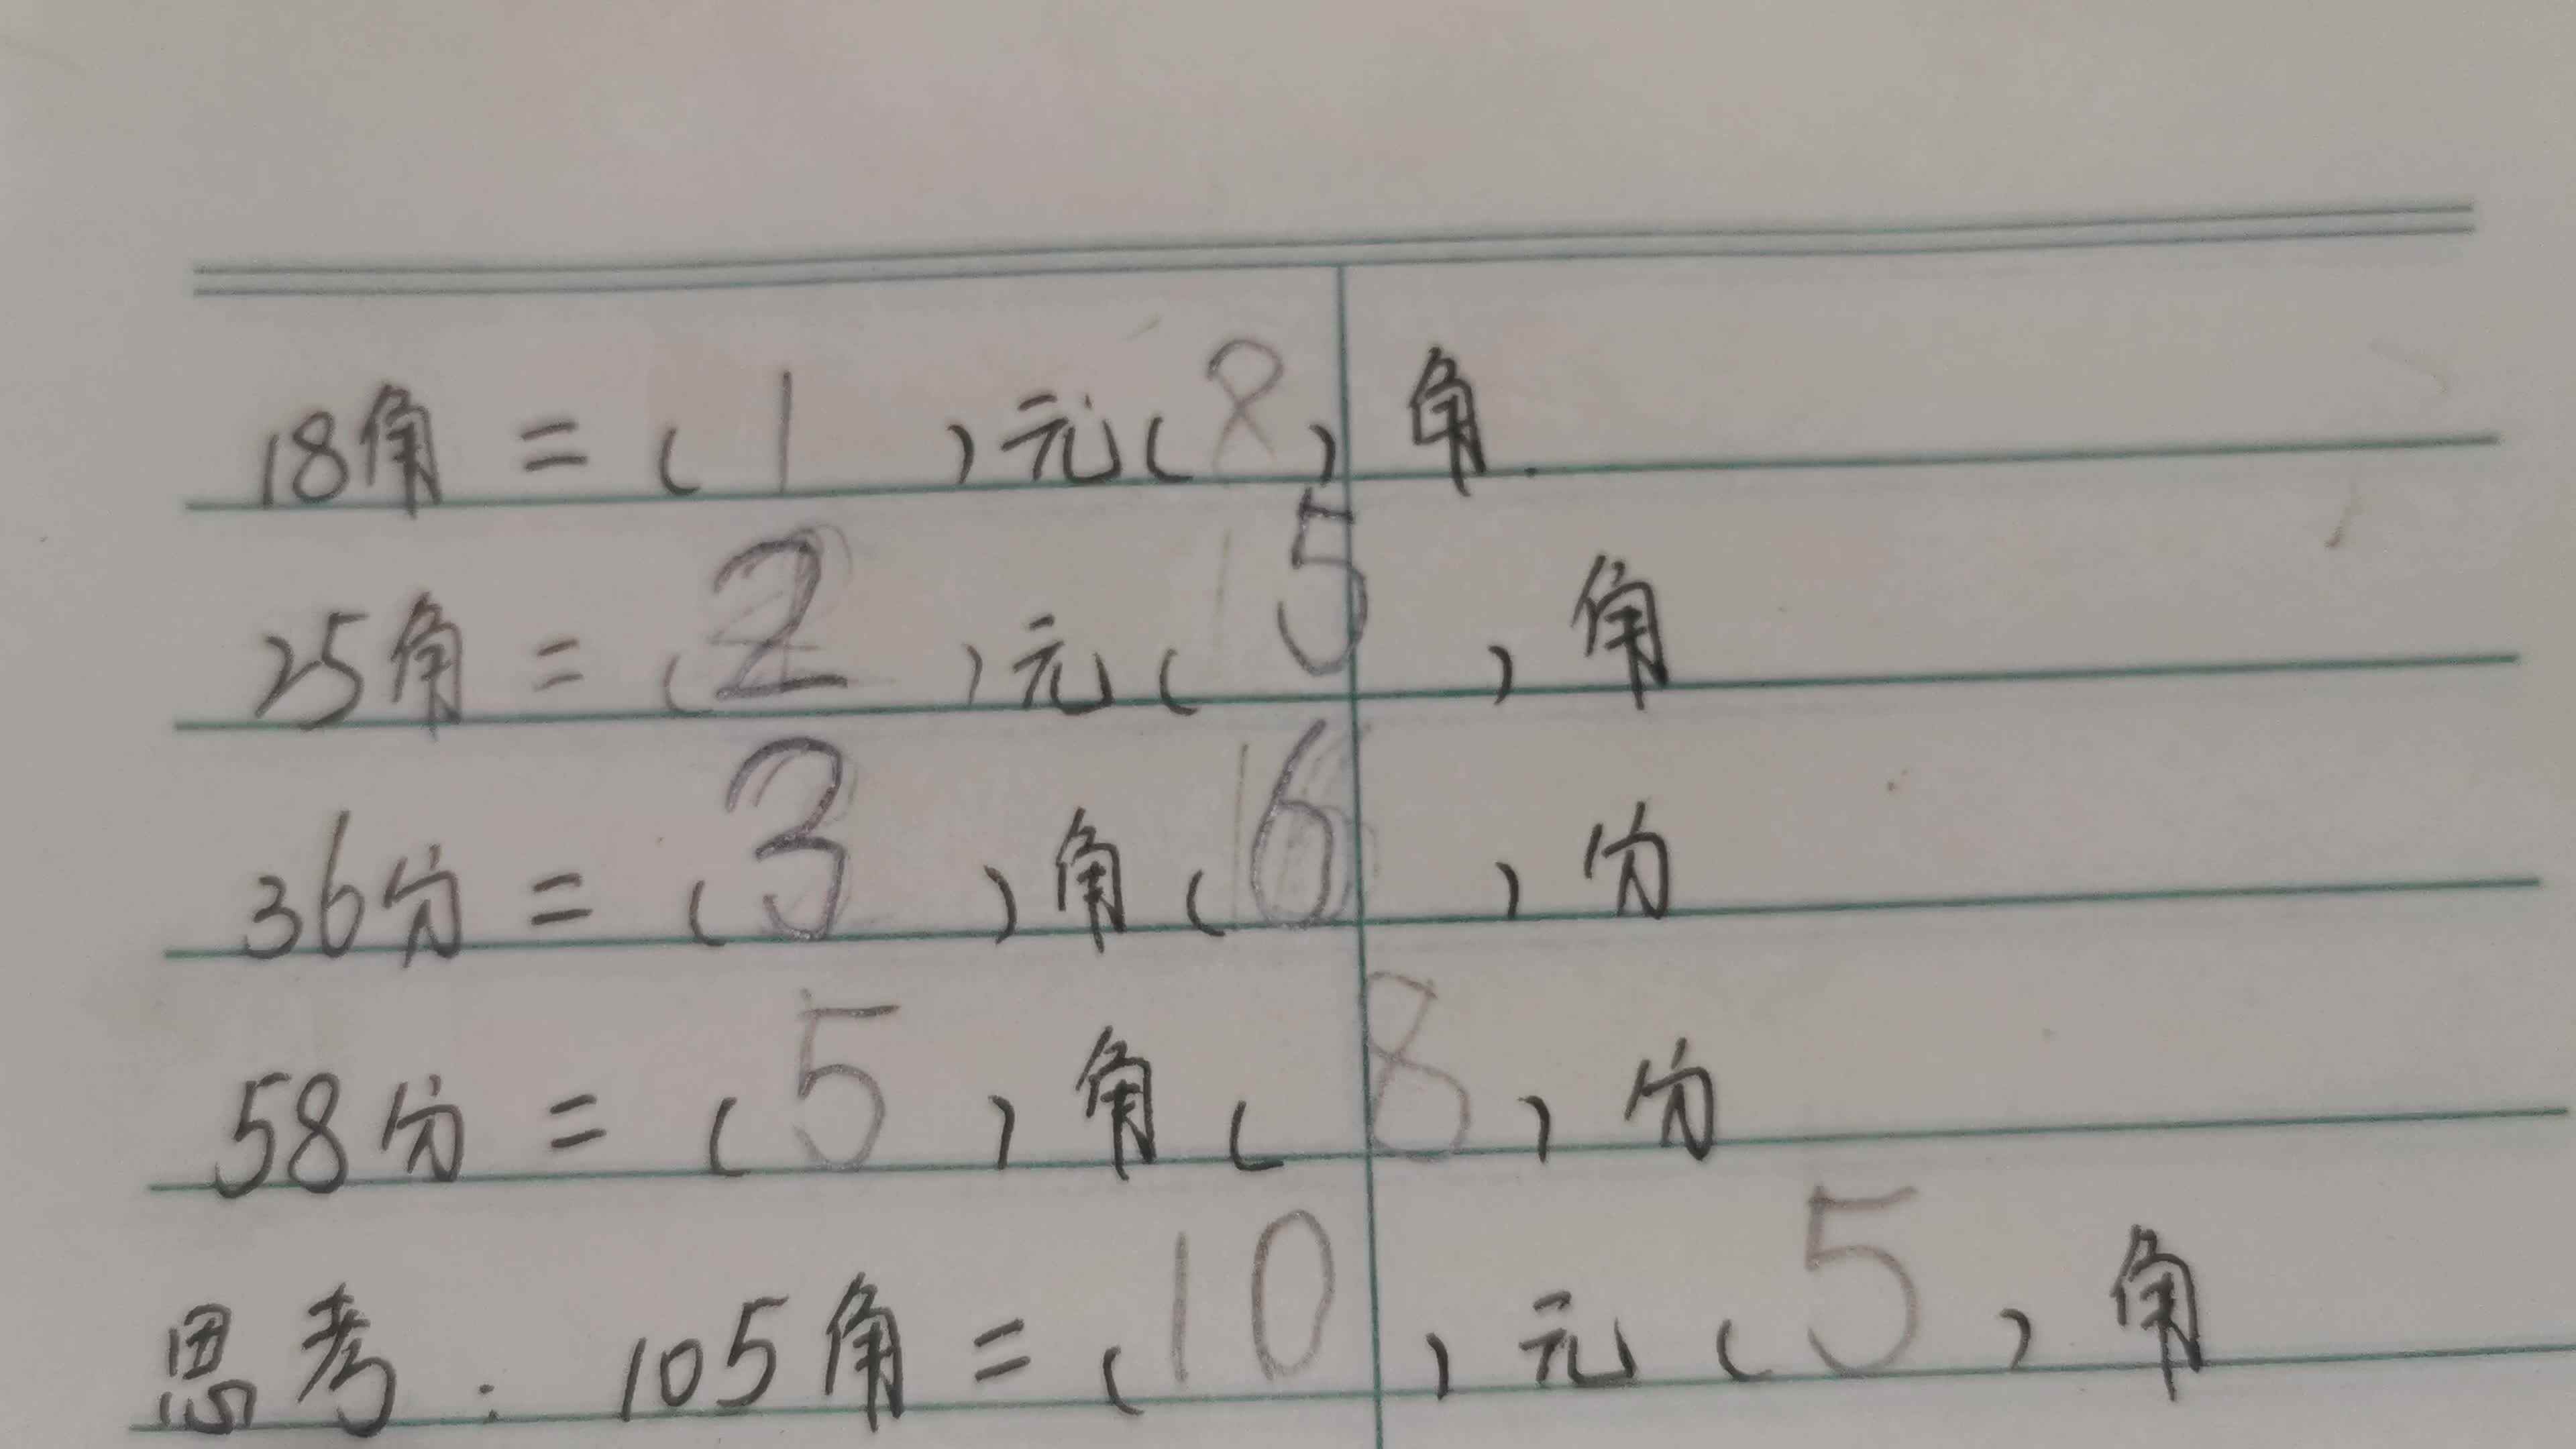 18角=(1)元(8)角.
25角=(2)元(5)角
36分=(3)角(6)分
58分=(5)角(8)分
思考:105角=(10)元(5)角